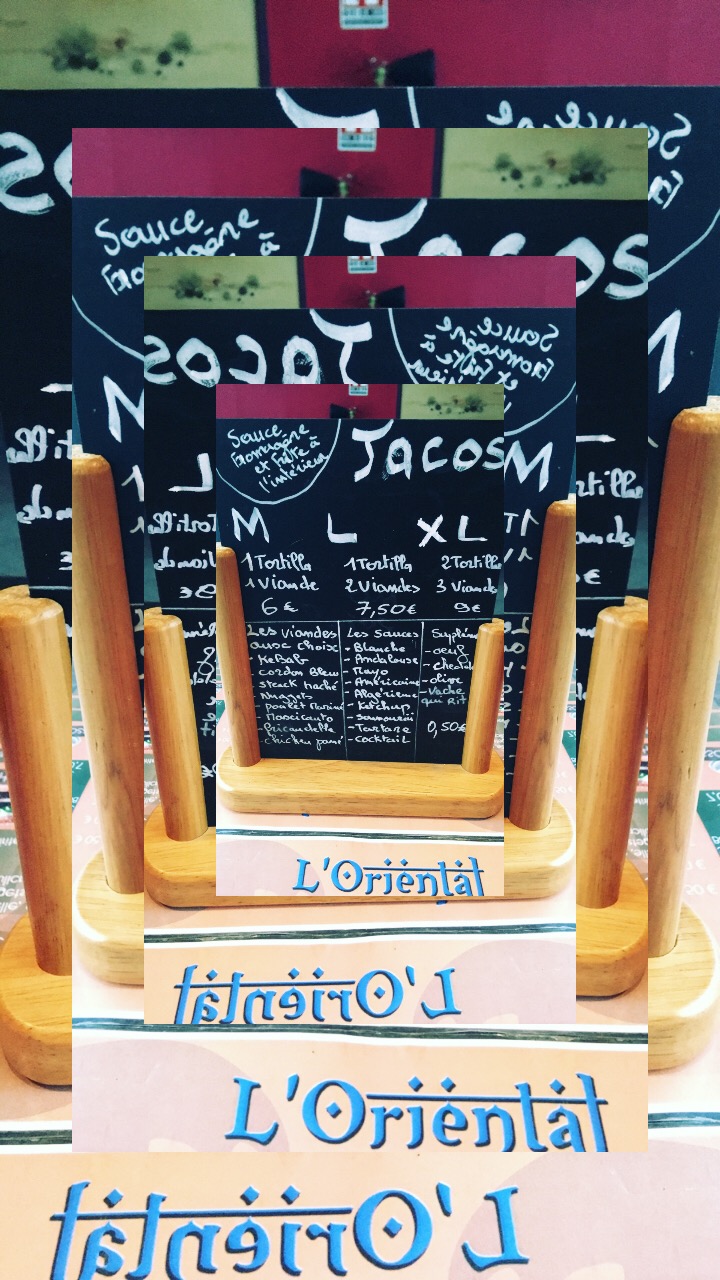 Sauce
Fromagère
et Frite à
l'intérieur
Tacos
M L XL
1 Tortilla 1 Tortilla 2 Tortilla
1 Viande 2 Viandes 3 Viande
6€ 7,50€ 9€
Les viandes
aux choix
- Kebab
- cordon Bleu
- steack haché
- Nuggets
- poulet Marine
- fricandelle
- chicken pané
Les sauces
- Blanche
- Andalouse
- Mayo
- Américaine
- Algérienne
- Ketchup
- Samourai
- Tartare
- Cocktail
Supplém
- oeuf
- chedda
- olive
- Vache
qui Rit
0,50€
L'Oriental
L'Oriental
L'Oriental
L'Oriental